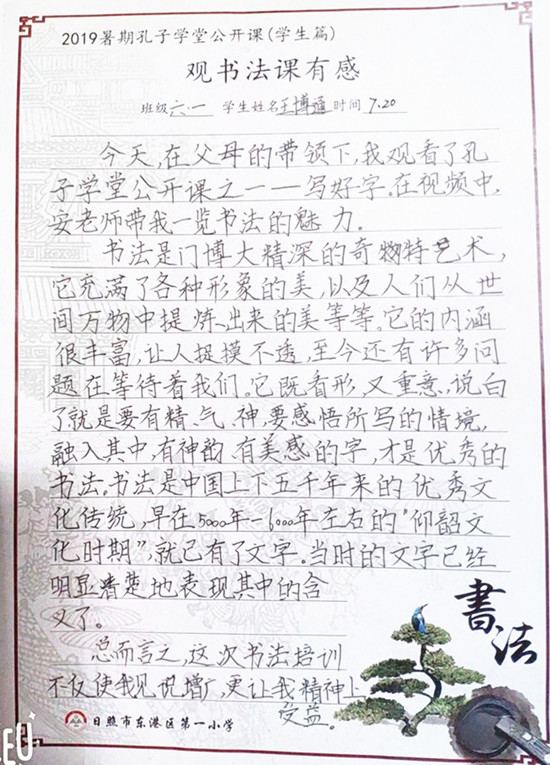 2019暑期孔子学堂公开课(学生篇)
观书法课有感
班级六.一 学生姓名王博通时间7.20
今天,在父母的带领下,我观看了孔
子学堂公开课之一——写好字.在视频中,
安老师带我一览书法的魅力.
书法是门博大精深的奇物特艺术,
它充满了各种形象的美,以及人们从世
间万物中提炼出来的美等等.它的内涵
很丰富,让人捉摸不透,至今还有许多问
题在等待着我们.它既看形,又重意,说白
了就是要有精、气、神,要感悟所写的情境,
融入其中,有神韵、有美感的字,才是优秀的
书法.书法是中国上下五千年来的优秀文
化传统,早在5000年-6000年左右的"仰韶文
化时期",就已有了文字.当时的文字已经
明显清楚地表现其中的含
义了.
总而言之,这次书法培训
不仅使我见识增广,更让我精神上
受益.
書法
日照市东港区第一小学
EU